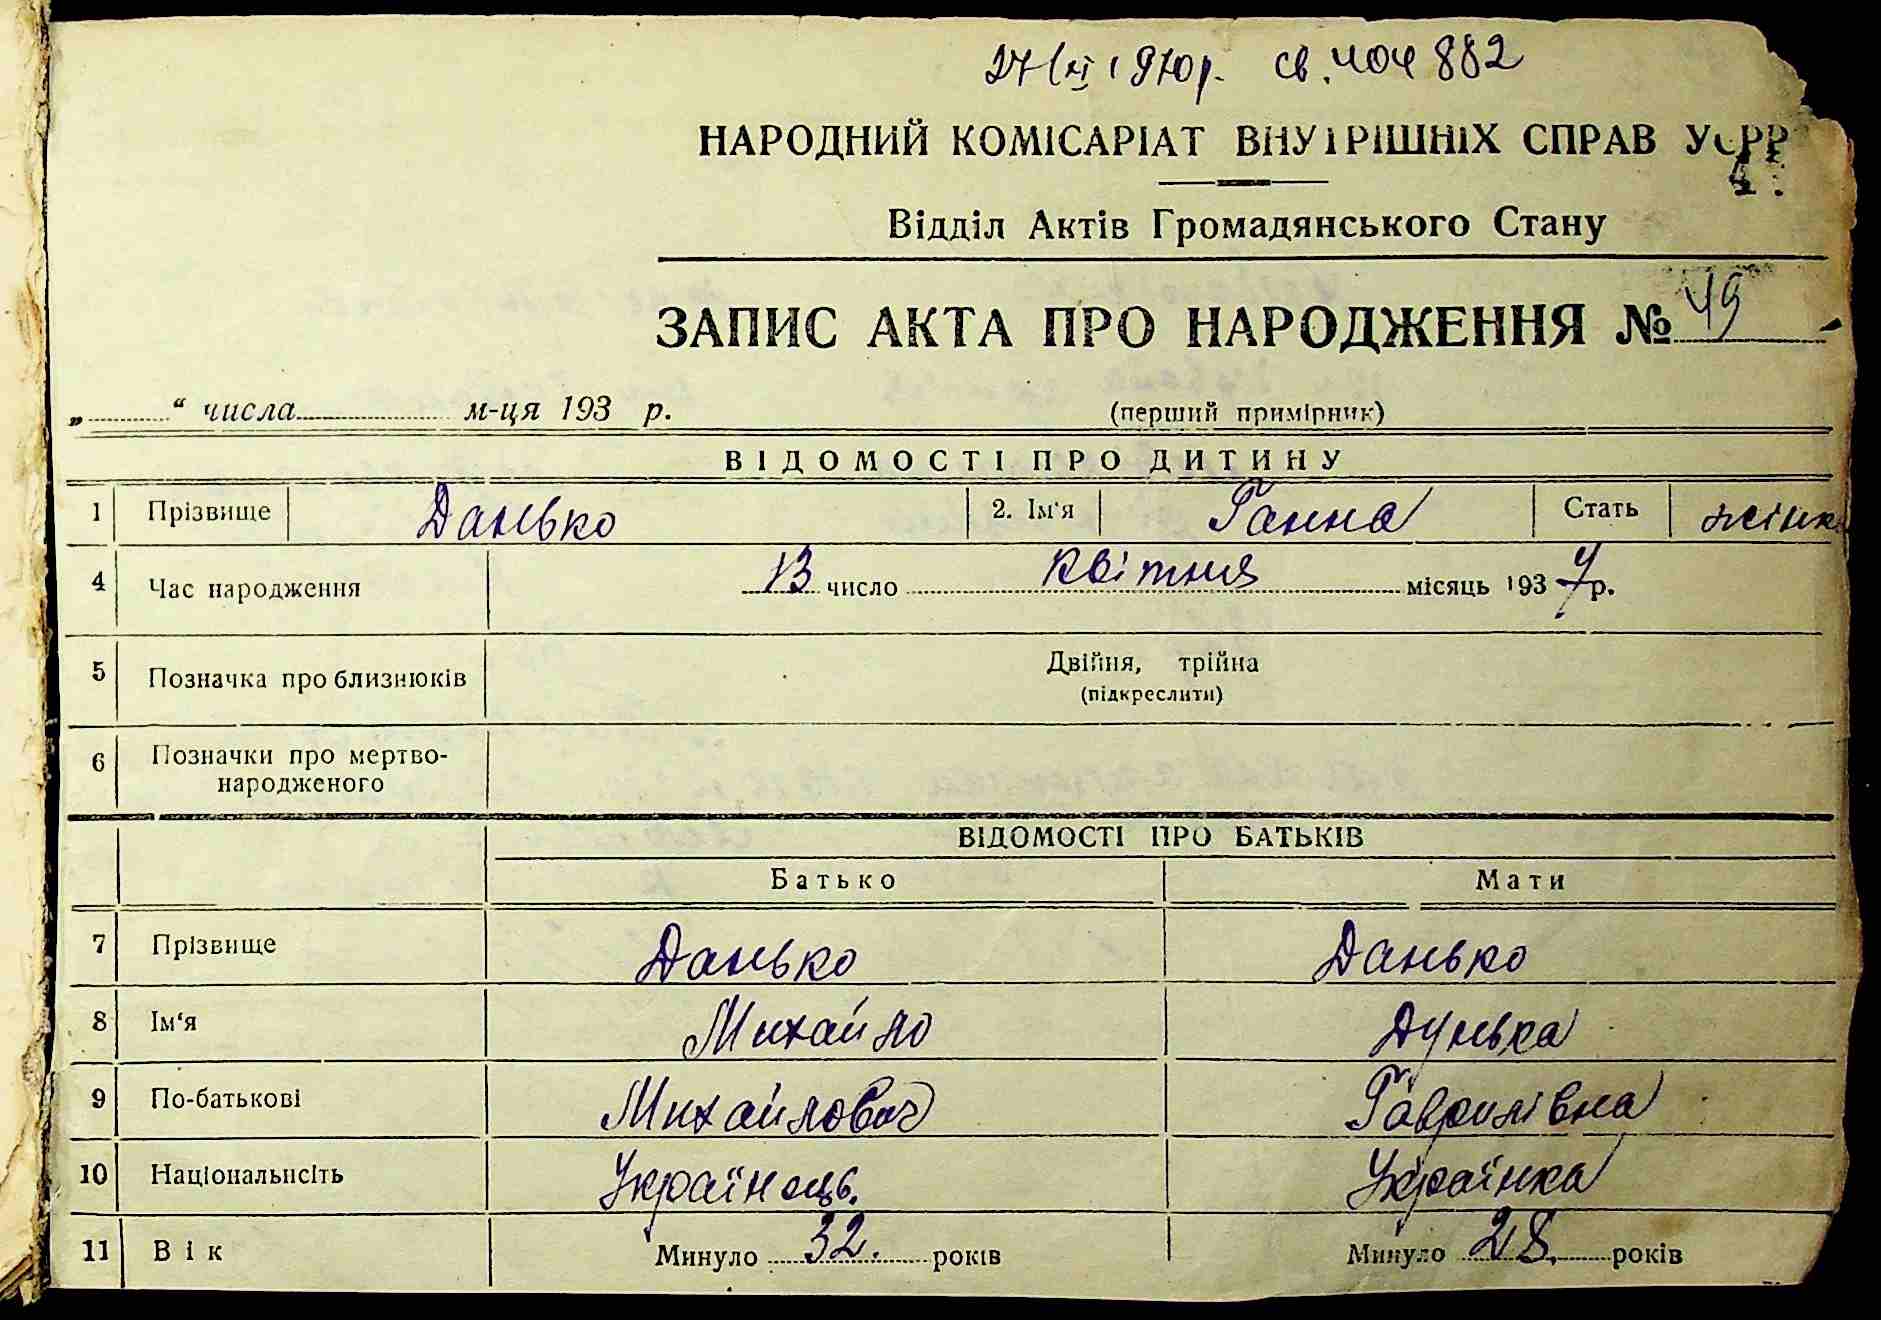 27/XI 1970р. св. 404882
НАРОДНИЙ КОМІСАРІАТ ВНУТРІШНІХ СПРАВ УСРР
Відділ Актів Громадянського Стану
ЗАПИС АКТА ПРО НАРОДЖЕННЯ № 49
„ “ числа м-ця 193 р. (перший примірник)
ВІДОМОСТІ ПРО ДИТИНУ
1 Прізвище Данько 2. Ім'я Ганна Стать жінк
4 Час народження 13 число Квітня місяць 1937р.
5 Позначка про близнюків Двійня, трійна
(підкреслити)
6 Позначки про мертво-
народженого
ВІДОМОСТІ ПРО БАТЬКІВ
Батько Мати
7 Прізвище Данько Данько
8 Ім'я Михайло Дунька
9 По-батькові Михайлович Гаврилівна
10 Національність Українець. Українка
11 Вік Минуло 32. років Минуло 28. років